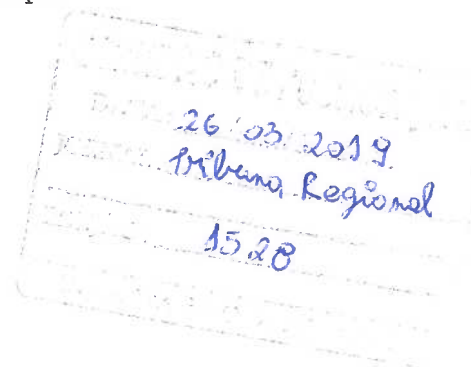 26 03 2019
Tribuna Regional
1528